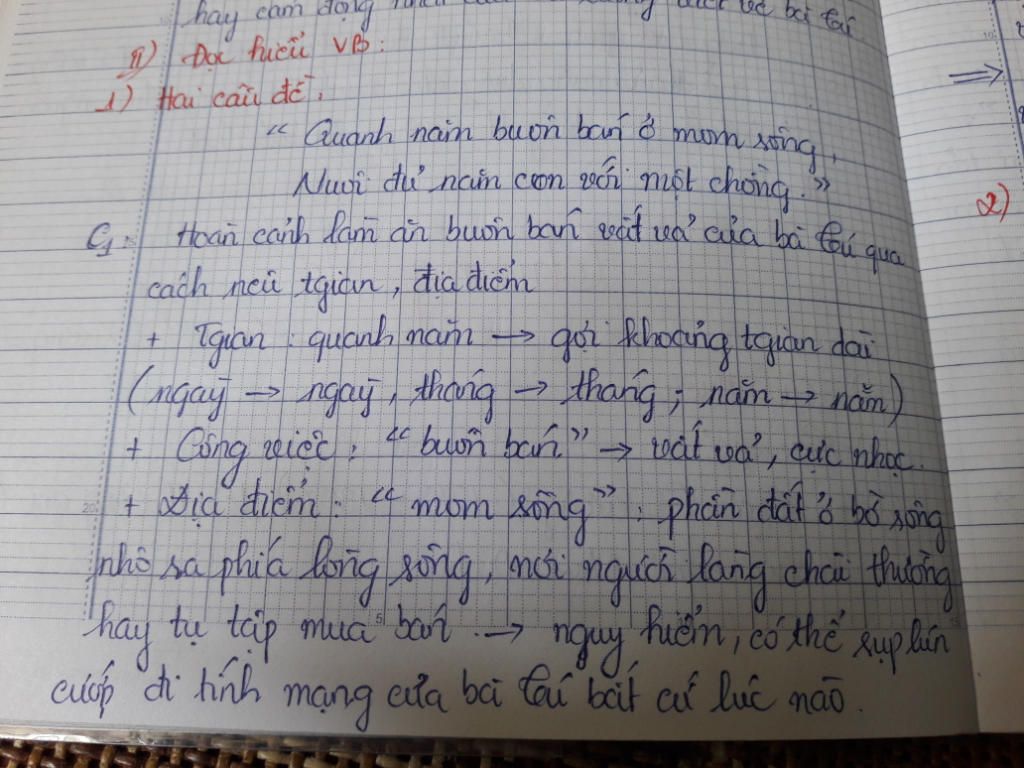 hay cảm động
bà tú
II) Đọc hiểu VB:
1) Hai câu đề:
" Quanh năm buôn bán ở mom sông,
Nuôi đủ năm con với một chồng."
C1: Hoàn cảnh làm ăn buôn bán vất vả của bà tú qua
cách nêu tgian, địa điểm
+ Tgian : quanh năm → gợi khoảng tgian dài
(ngày → ngày, tháng → tháng ; năm → năm)
+ Công việc : "buôn bán" → vất vả, cực nhọc.
+ Địa điểm : "mom sông" : phần đất ở bờ sông
nhô sa phía lòng sông, nơi người làng chài thường
hay tụ tập mua bán → nguy hiểm, có thể sụp lún
cướp đi tính mạng của bà tú bất cứ lúc nào.
⇒
2)